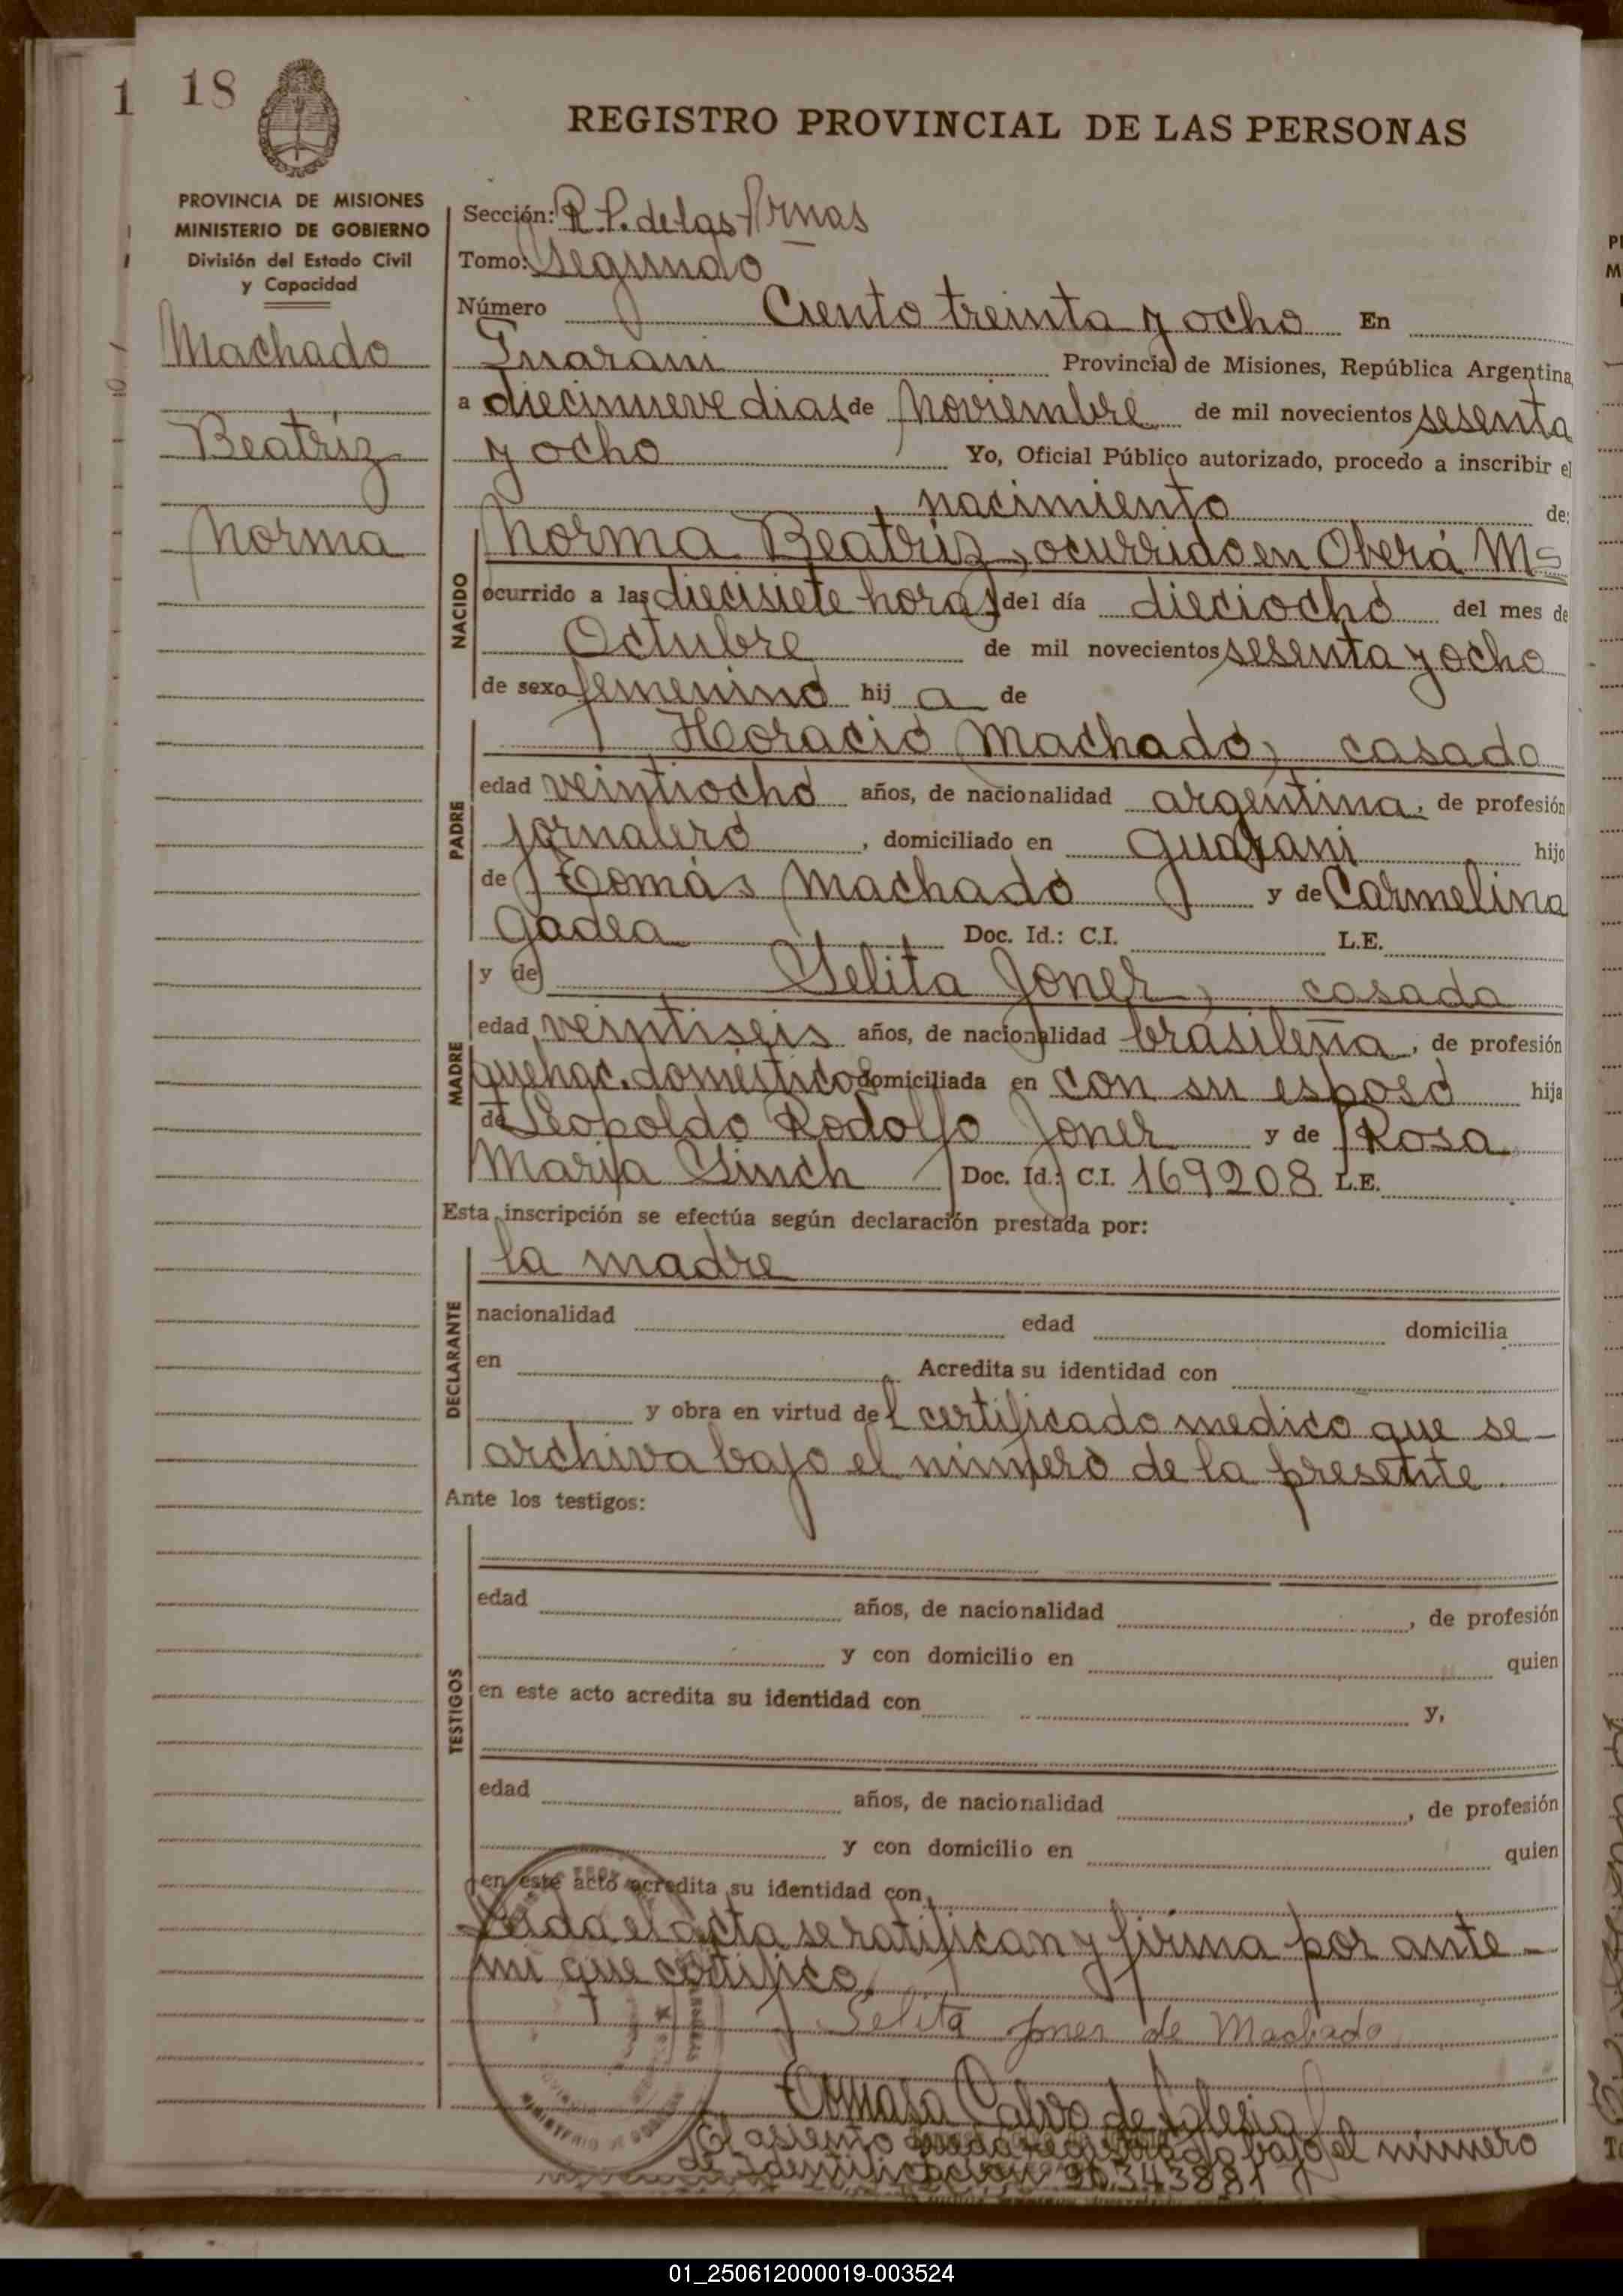 1
18
REGISTRO PROVINCIAL DE LAS PERSONAS
PROVINCIA DE MISIONES
MINISTERIO DE GOBIERNO
División del Estado Civil
y Capacidad
Machado
Beatríz
Norma
Sección: R. P. de las Prnas
Tomo: Segundo
Número Ciento treinta y ocho En
Guarani Provincia de Misiones, República Argentina,
a diecinueve dias de Noviembre de mil novecientos sesenta
y ocho Yo, Oficial Público autorizado, procedo a inscribir el
nacimiento de:
NACIDO
Norma Beatriz, ocurrido en Oberá Ms
ocurrido a las diecisiete horas del día dieciocho del mes de
Octubre de mil novecientos sesenta y ocho
de sexo femenino hij a de
PADRE
Horacio Machado, casado
edad veintiocho años, de nacionalidad argentina, de profesión
jornalero, domiciliado en Guarani hijo
de Tomás Machado y de Carmelina
Gadea Doc. Id.: C.I. L.E.
MADRE
y de Selita Joner, casada
edad veintiseis años, de nacionalidad brasileña, de profesión
quehac. domésticos domiciliada en con su esposo hija
de Leopoldo Rodolfo Joner y de Rosa
Maria Sinch Doc. Id.: C.I. 169208 L.E.
Esta inscripción se efectúa según declaración prestada por:
DECLARANTE
la madre
nacionalidad edad domicilia
en Acredita su identidad con
y obra en virtud del certificado medico que se-
archiva bajo el número de la presente.
Ante los testigos:
TESTIGOS
edad años, de nacionalidad , de profesión
y con domicilio en quien
en este acto acredita su identidad con y,
edad años, de nacionalidad , de profesión
y con domicilio en quien
en este acto acredita su identidad con
Leida el acta se ratifican y firma por ante-
mi que certifico.
Selita Joner de Machado
Tomasa Calvo de Iglesia
El asiento queda registrado bajo el número
de Identificación 20.343881
01_250612000019-003524